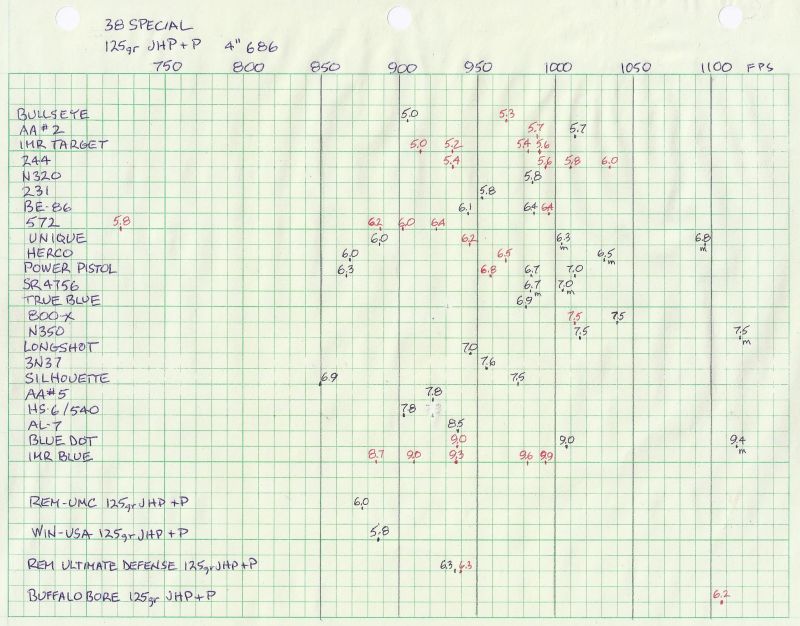 38 SPECIAL
125gr JHP+P 4" 686
750 800 850 900 950 1000 1050 1100 FPS
BULLSEYE 5.0 5.3
AA#2 5.7 5.7
IMR TARGET 5.0 5.2 5.4 5.6
244 5.4 5.6 5.8 6.0
N320 5.8
231 5.8
BE-86 6.1 6.4 6.4
572 5.8 6.2 6.0 6.4
UNIQUE 6.0 6.2 6.3 m 6.8 m
HERCO 6.0 6.5 6.5 m
POWER PISTOL 6.3 6.8 6.7 7.0
SR4756 6.7 m 7.0 m
TRUE BLUE 6.9
800-X 7.5 7.5
N350 7.5 7.5 m
LONGSHOT 7.0
3N37 7.6
SILHOUETTE 6.9 7.5
AA#5 7.8
HS-6/540 7.8
AL-7 8.5
BLUE DOT 9.0 9.0 9.4 m
IMR BLUE 8.7 9.0 9.3 9.6 9.9
REM-UMC 125gr JHP+P 6.0
WIN-USA 125gr JHP+P 5.8
REM ULTIMATE DEFENSE 125gr JHP+P 6.3 6.3
BUFFALO BORE 125gr JHP+P 6.2